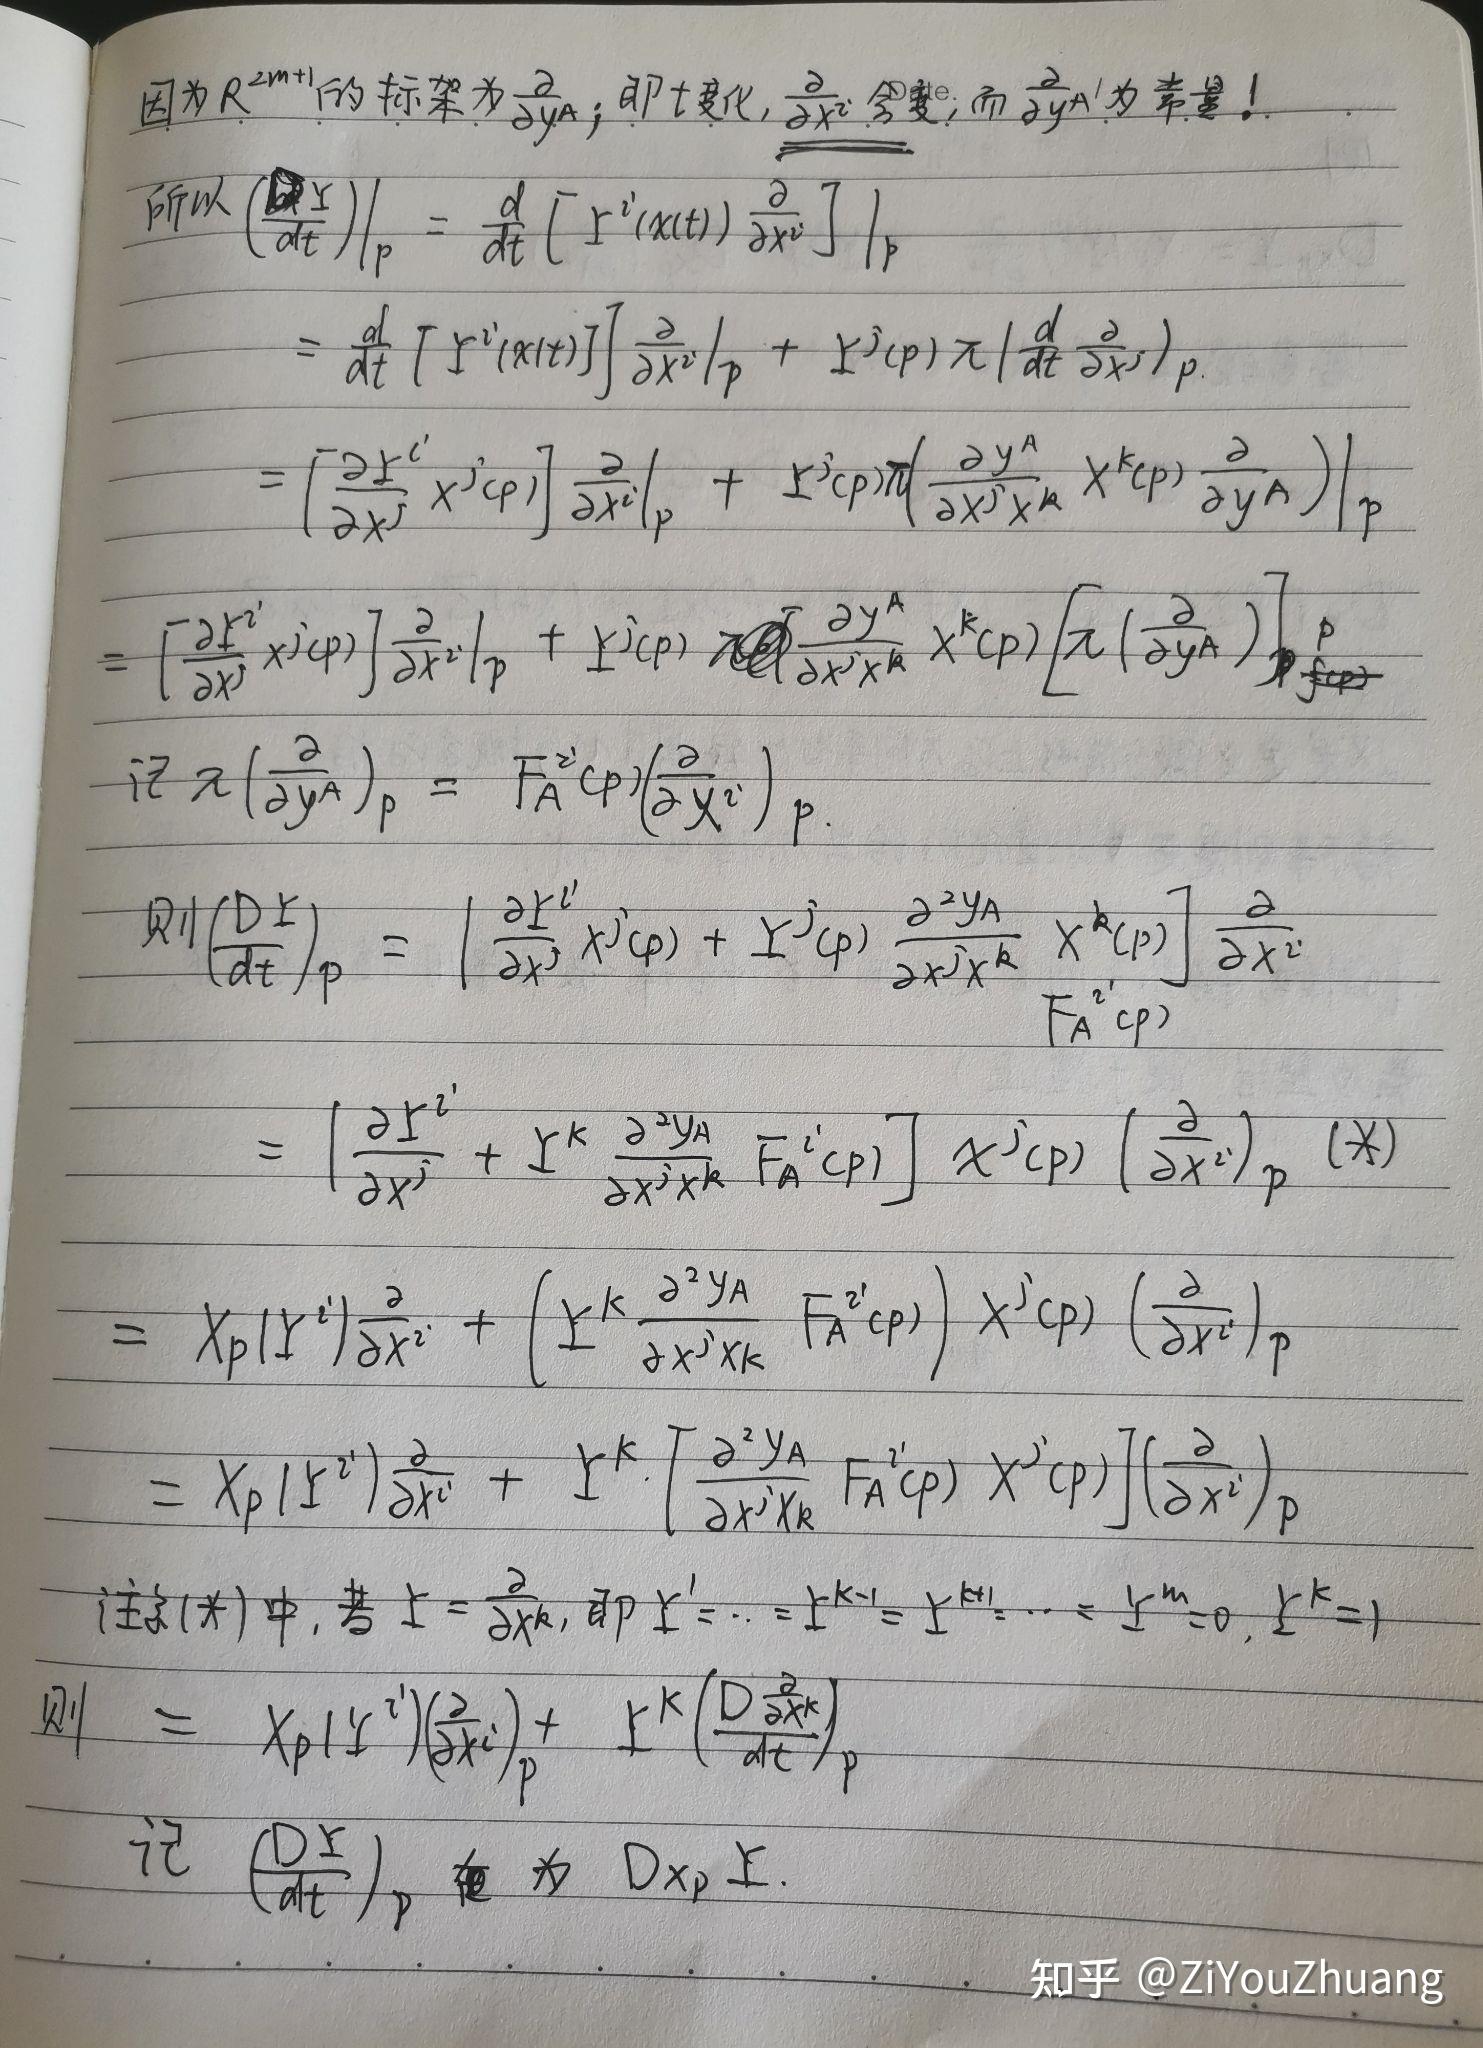 因为 R^{2m+1} 的标架为 ∂/∂y^A; 即t变化, ∂/∂x^i 会变, 而 ∂/∂y^A 为常量!
Date.
所以 (DY/dt)|_p = d/dt [Y^i(x(t)) ∂/∂x^i]|_p
= d/dt [Y^i(x(t))] ∂/∂x^i|_p + Y^j(p) π(d/dt ∂/∂x^j)_p.
= [∂Y^i/∂x^j X^j(p)] ∂/∂x^i|_p + Y^j(p) π(∂y^A/∂x^jx^k X^k(p) ∂/∂y^A)|_p
= [∂Y^i/∂x^j X^j(p)] ∂/∂x^i|_p + Y^j(p) ∂y^A/∂x^jx^k X^k(p) [π(∂/∂y^A)]_p
记 π(∂/∂y^A)_p = F_A^i(p)(∂/∂x^i)_p.
则 (DY/dt)_p = [∂Y^i/∂x^j X^j(p) + Y^j(p) ∂²y_A/∂x^jx^k X^k(p)] ∂/∂x^i
F_A^i(p)
= [∂Y^i/∂x^j + Y^k ∂²y_A/∂x^jx^k F_A^i(p)] X^j(p) (∂/∂x^i)_p (*)
= X_p(Y^i) ∂/∂x^i + (Y^k ∂²y_A/∂x^jx_k F_A^i(p)) X^j(p) (∂/∂x^i)_p
= X_p(Y^i) ∂/∂x^i + Y^k · [∂²y_A/∂x^jx_k F_A^i(p) X^j(p)] (∂/∂x^i)_p
注意(*)中, 若 Y = ∂/∂x^k, 即 Y^1 = ·· = Y^{k-1} = Y^{k+1} = ··· = Y^m = 0, Y^k = 1
则 = X_p(Y^i)(∂/∂x^i)_p + Y^k (D ∂/∂x^k / dt)_p
记 (DY/dt)_p 为 D_{X_p} Y.
知乎 @ZiYouZhuang